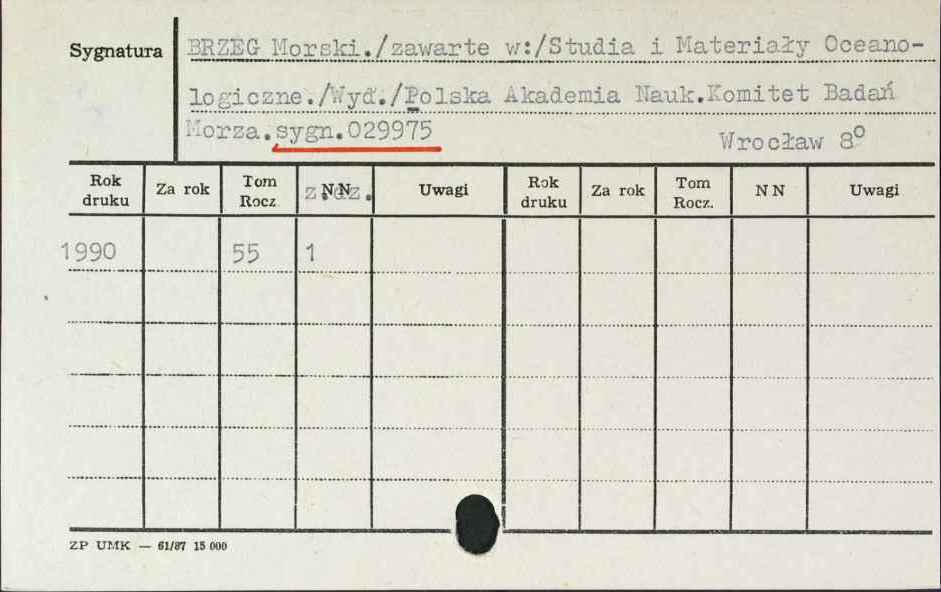 Sygnatura BRZEG Morski./zawarte w:/Studia i Materiały Oceano-
logiczne./Wyd./Polska Akademia Nauk.Komitet Badań
Morza.sygn.029975 Wrocław 8°
Rok druku Za rok Tom Rocz NN z.cz. Uwagi Rok druku Za rok Tom Rocz. NN Uwagi
1990 55 1
ZP UMK — 61/87 15 000